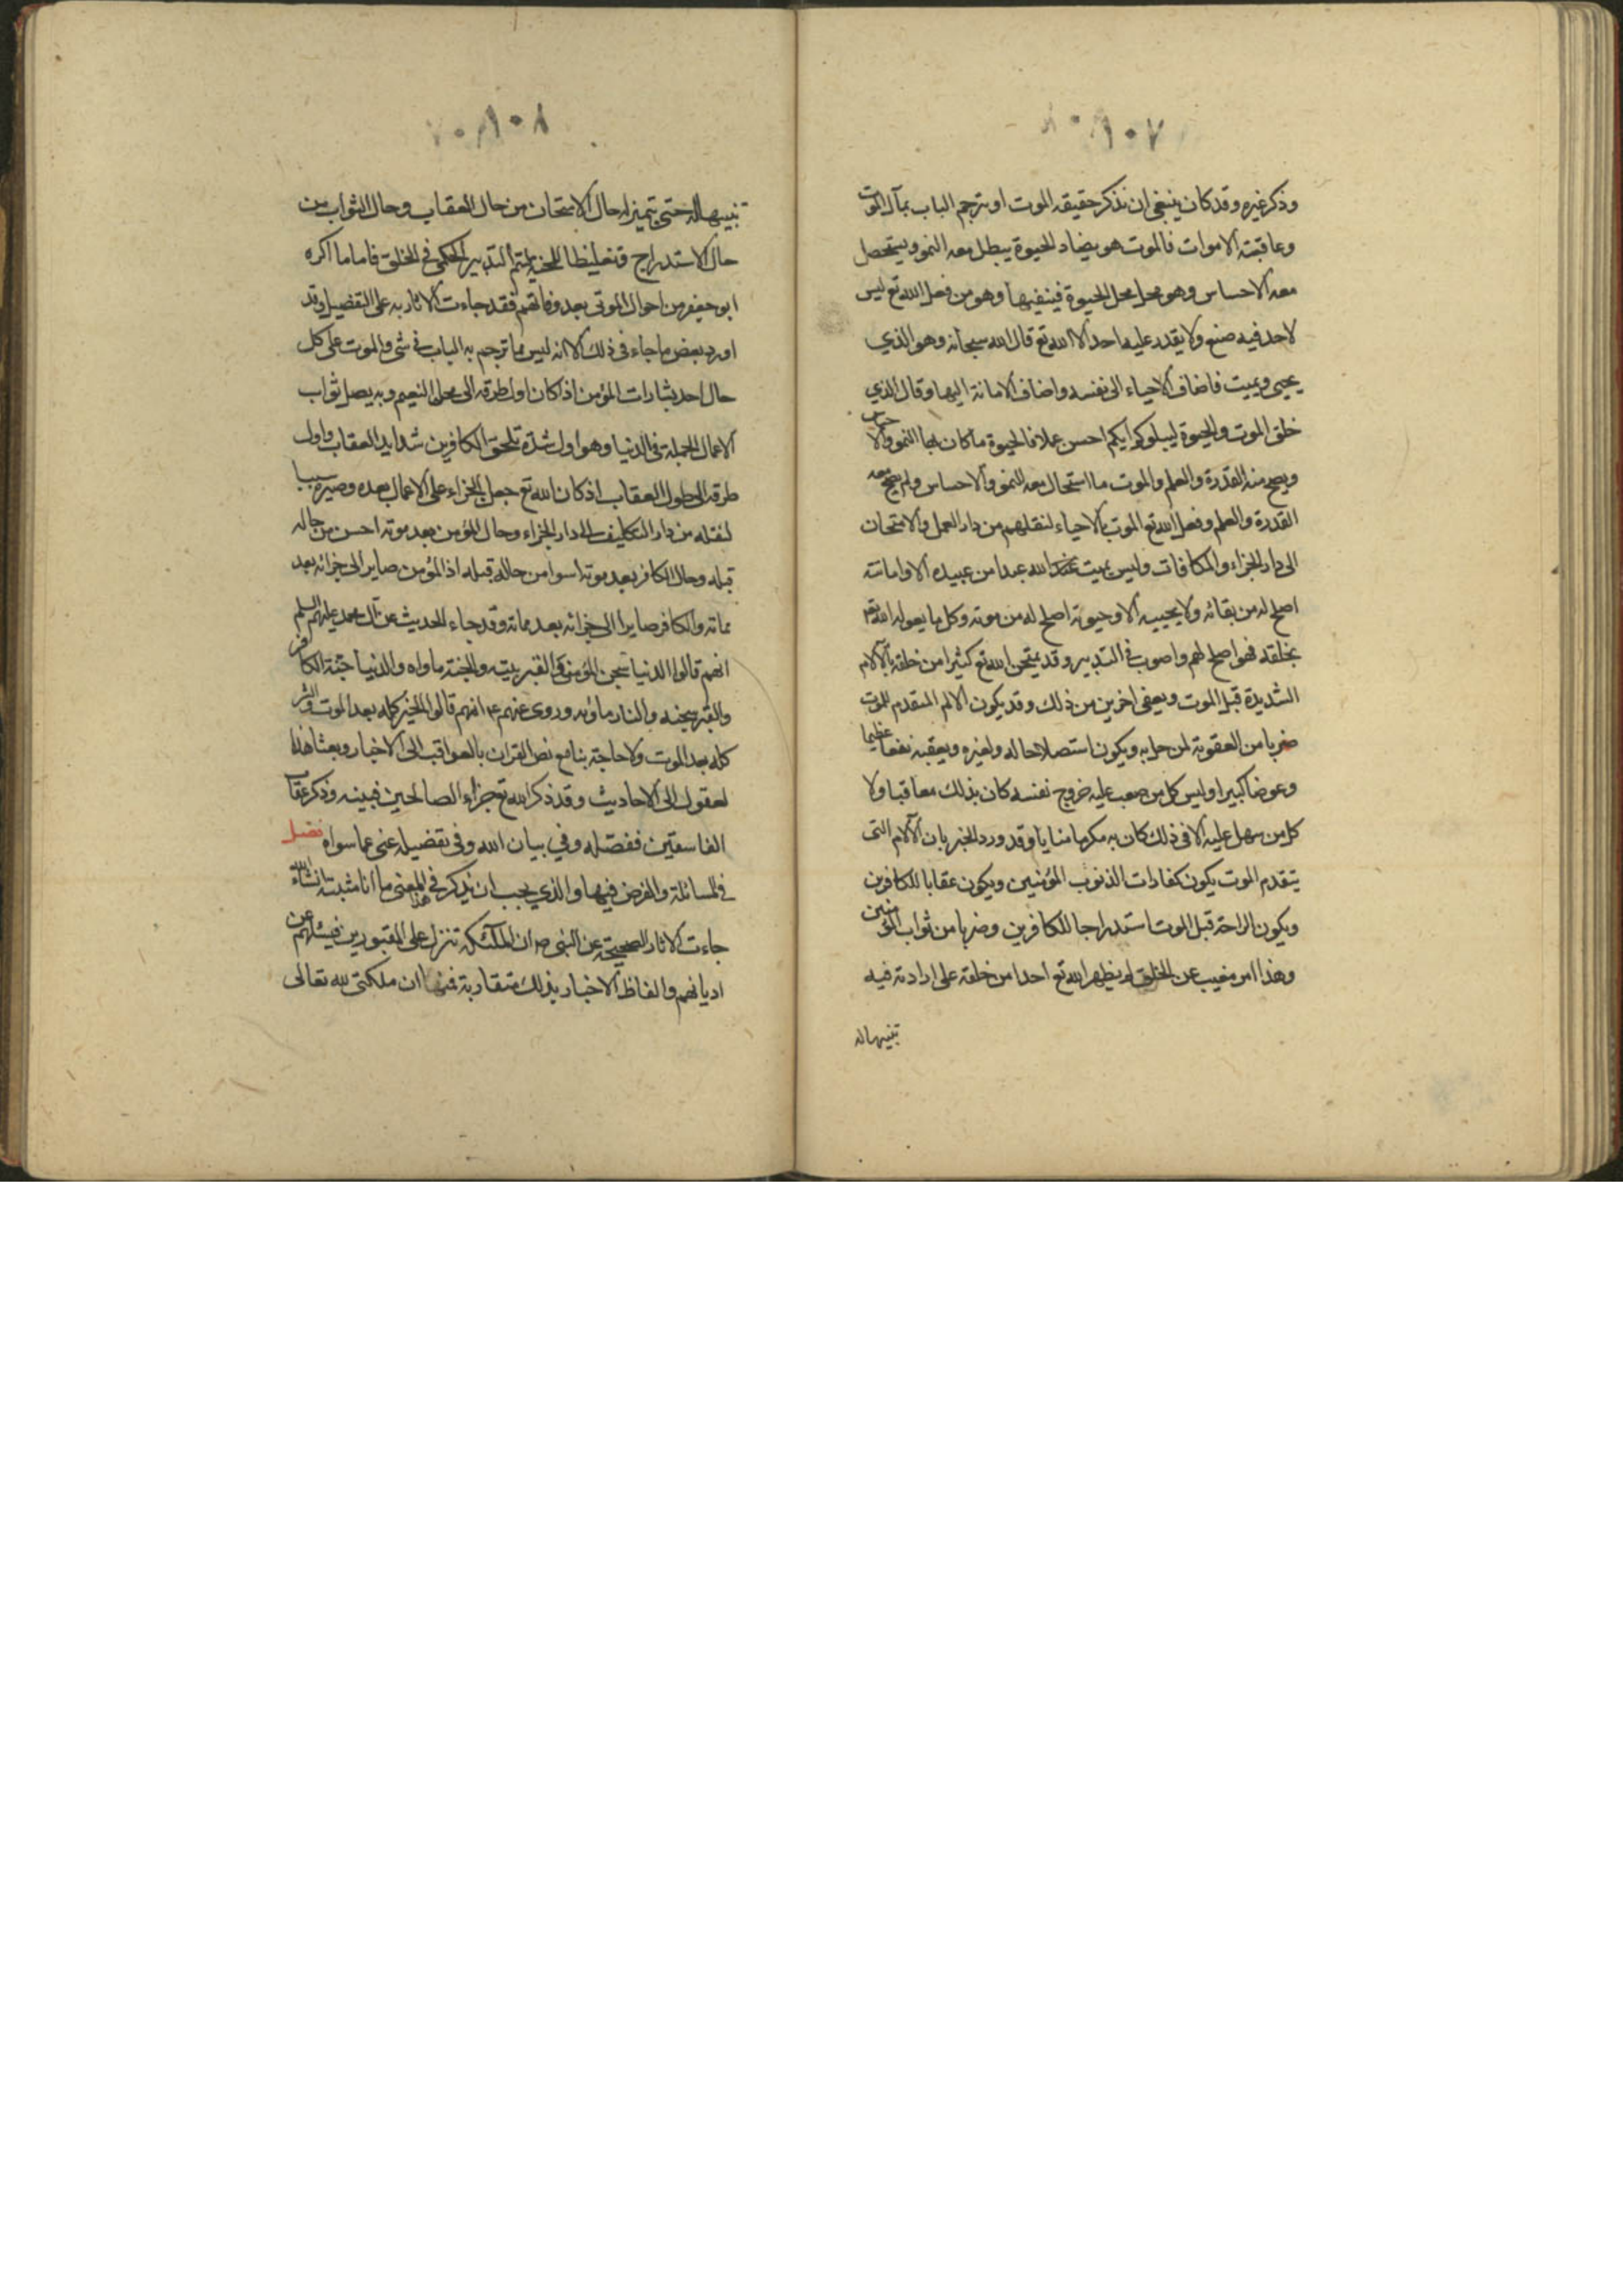 ١٠٧
وذكر غيره وقد كان ينبغي ان نذكر حقيقة الموت او يترجم الباب بمآل الموت
وعاقبة الاموات فالموت هو يضاد الحيوة يبطل معه النمو ويستحيل
معه الاحساس وهو محل محل الحيوة فينفيها وهو من فعل الله تع ليس
لاحد فيه صنع ولا يقدر عليه احد الا الله تع قال الله سبحانه وهو الذي
يحيى ويميت فاضاف الاحياء الى نفسه واضاف الاماتة اليها وقال الذي
خلق الموت والحيوة ليبلوكم ايكم احسن عملا فالحيوة ما كان بها النمو والاحساس
ويصح معه القدرة والعلم والموت ما استحال معه النمو والاحساس ولم يصح معه
القدرة والعلم وفعل الله تع الموت بالاحياء لنقلهم من دار العمل والامتحان
الى دار الجزاء والمكافات وليس يميت الله عبدا من عبيده الا واماتته
اصلح له من بقائه ولا يحييه الا وحيوته اصلح له من موته وكل ما يفعله الله تع
بخلقه فهو اصلح لهم واصوب في التدبير وقد يمتحن الله تع كثيرا من خلقه بالآلام
الشديدة قبل الموت ويعفى اخرين من ذلك وقد يكون الالم المتقدم للموت
ضربا من العقوبة لمن حل به ويكون استصلاحا له ولغيره ويعقبه نفعا عظيما
وعوضا كبيرا وليس كل من صعب عليه خروج نفسه كان بذلك معاقبا ولا
كل من سهل عليه الامر في ذلك كان به مكرما مثابا وقد ورد الخبر بان الآلام التى
يتقدم الموت يكون كفارات الذنوب المؤمنين ويكون عقابا للكافرين
ويكون الراحة قبل الموت استدراجا للكافرين وضربا من ثواب المؤمنين
وهذا امر مغيب عن الخلق لم يظهر الله تع احدا من خلقه على ارادته فيه
تنبيها له
١٠٨
تنبيها له حتى يتميز له حال الامتحان من حال العقاب وحال الثواب من
حال الاستدراج وتغليظا للمحنة ليتم التدبير الحكمى في الخلق فاما ما اكره
ابو جعفر من احوال الموتى بعد وفاتهم فقد جاءت الاثار به على التفصيل وقد
اورد بعض ما جاء فى ذلك الا انه ليس مما ترجم به الباب في شئ والموت على كل
حال احد بشارات المؤمن اذ كان اول طرقه الى محل النعيم وبه يصل ثواب
الاعمال الجميلة فى الدنيا وهو اول شدة تلحق الكافرين شدايد العقاب واول
طرقه الى حلول العقاب اذ كان الله تع جعل الجزاء على الاعمال بعده وصيره سببا
لنقله من دار التكليف الى دار الجزاء وحال المؤمن بعد موته احسن من حاله
قبله وحال الكافر بعد موته اسوا من حاله قبله اذ المؤمن صاير الى جزائه بعد
مماته والكافر صايرا الى جزائه بعد مماته وقد جاء الحديث عن آل محمد عليهم السلم
انهم قالوا الدنيا سجن المؤمن والقبر بيته والجنة ماواه والدنيا جنة الكافر
والقبر سجنه والنار ماويه وروى عنهم ع انهم قالوا الخير كله بعد الموت والشر
كله بعد الموت ولا حاجة بنا مع نص القران بالعواقب الى الاخبار وبعد
لعقول الى الاحاديث وقد ذكر الله تع جزاء الصالحين فبينه وذكر عقاب
الفاسقين ففصله وفي بيان الله وفى تفصيله غنى عما سواه فصل
في المسائلة والفرض فيها والذي يجب ان نذكر في هذا المعنى ما انا مثبته انشاء الله
جاءت الاثار الصحيحة عن النبى ص ان الملائكة تنزل على المقبورين فيسئلهم عن
اديانهم والفاظ الاخبار بذلك متقاربة فمنها ان ملكين لله تعالى